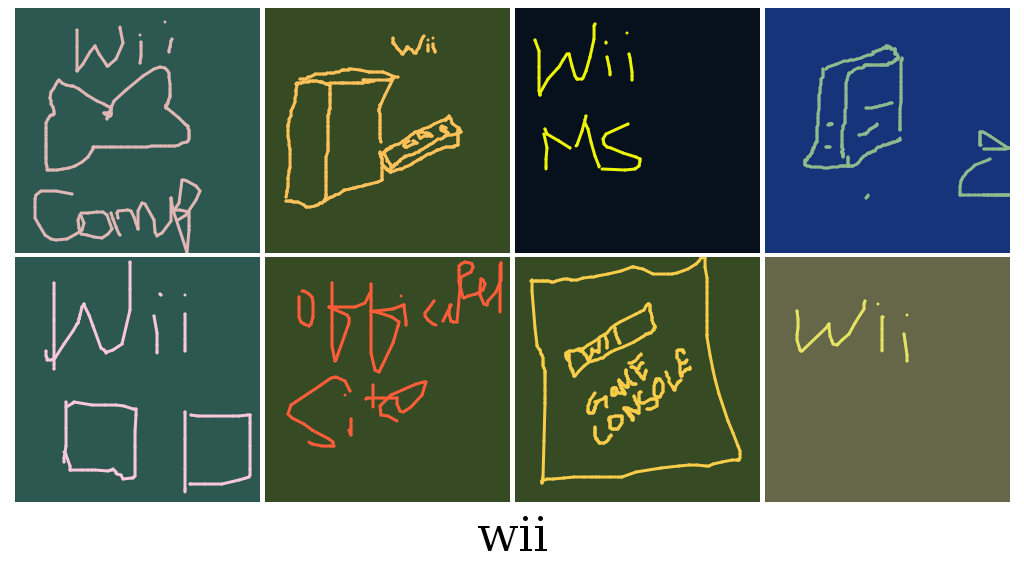 Wii
Comp
Wii
Wii
MS
Wii
Official
Site
Wii
GAME
CONSOLE
Wii
wii